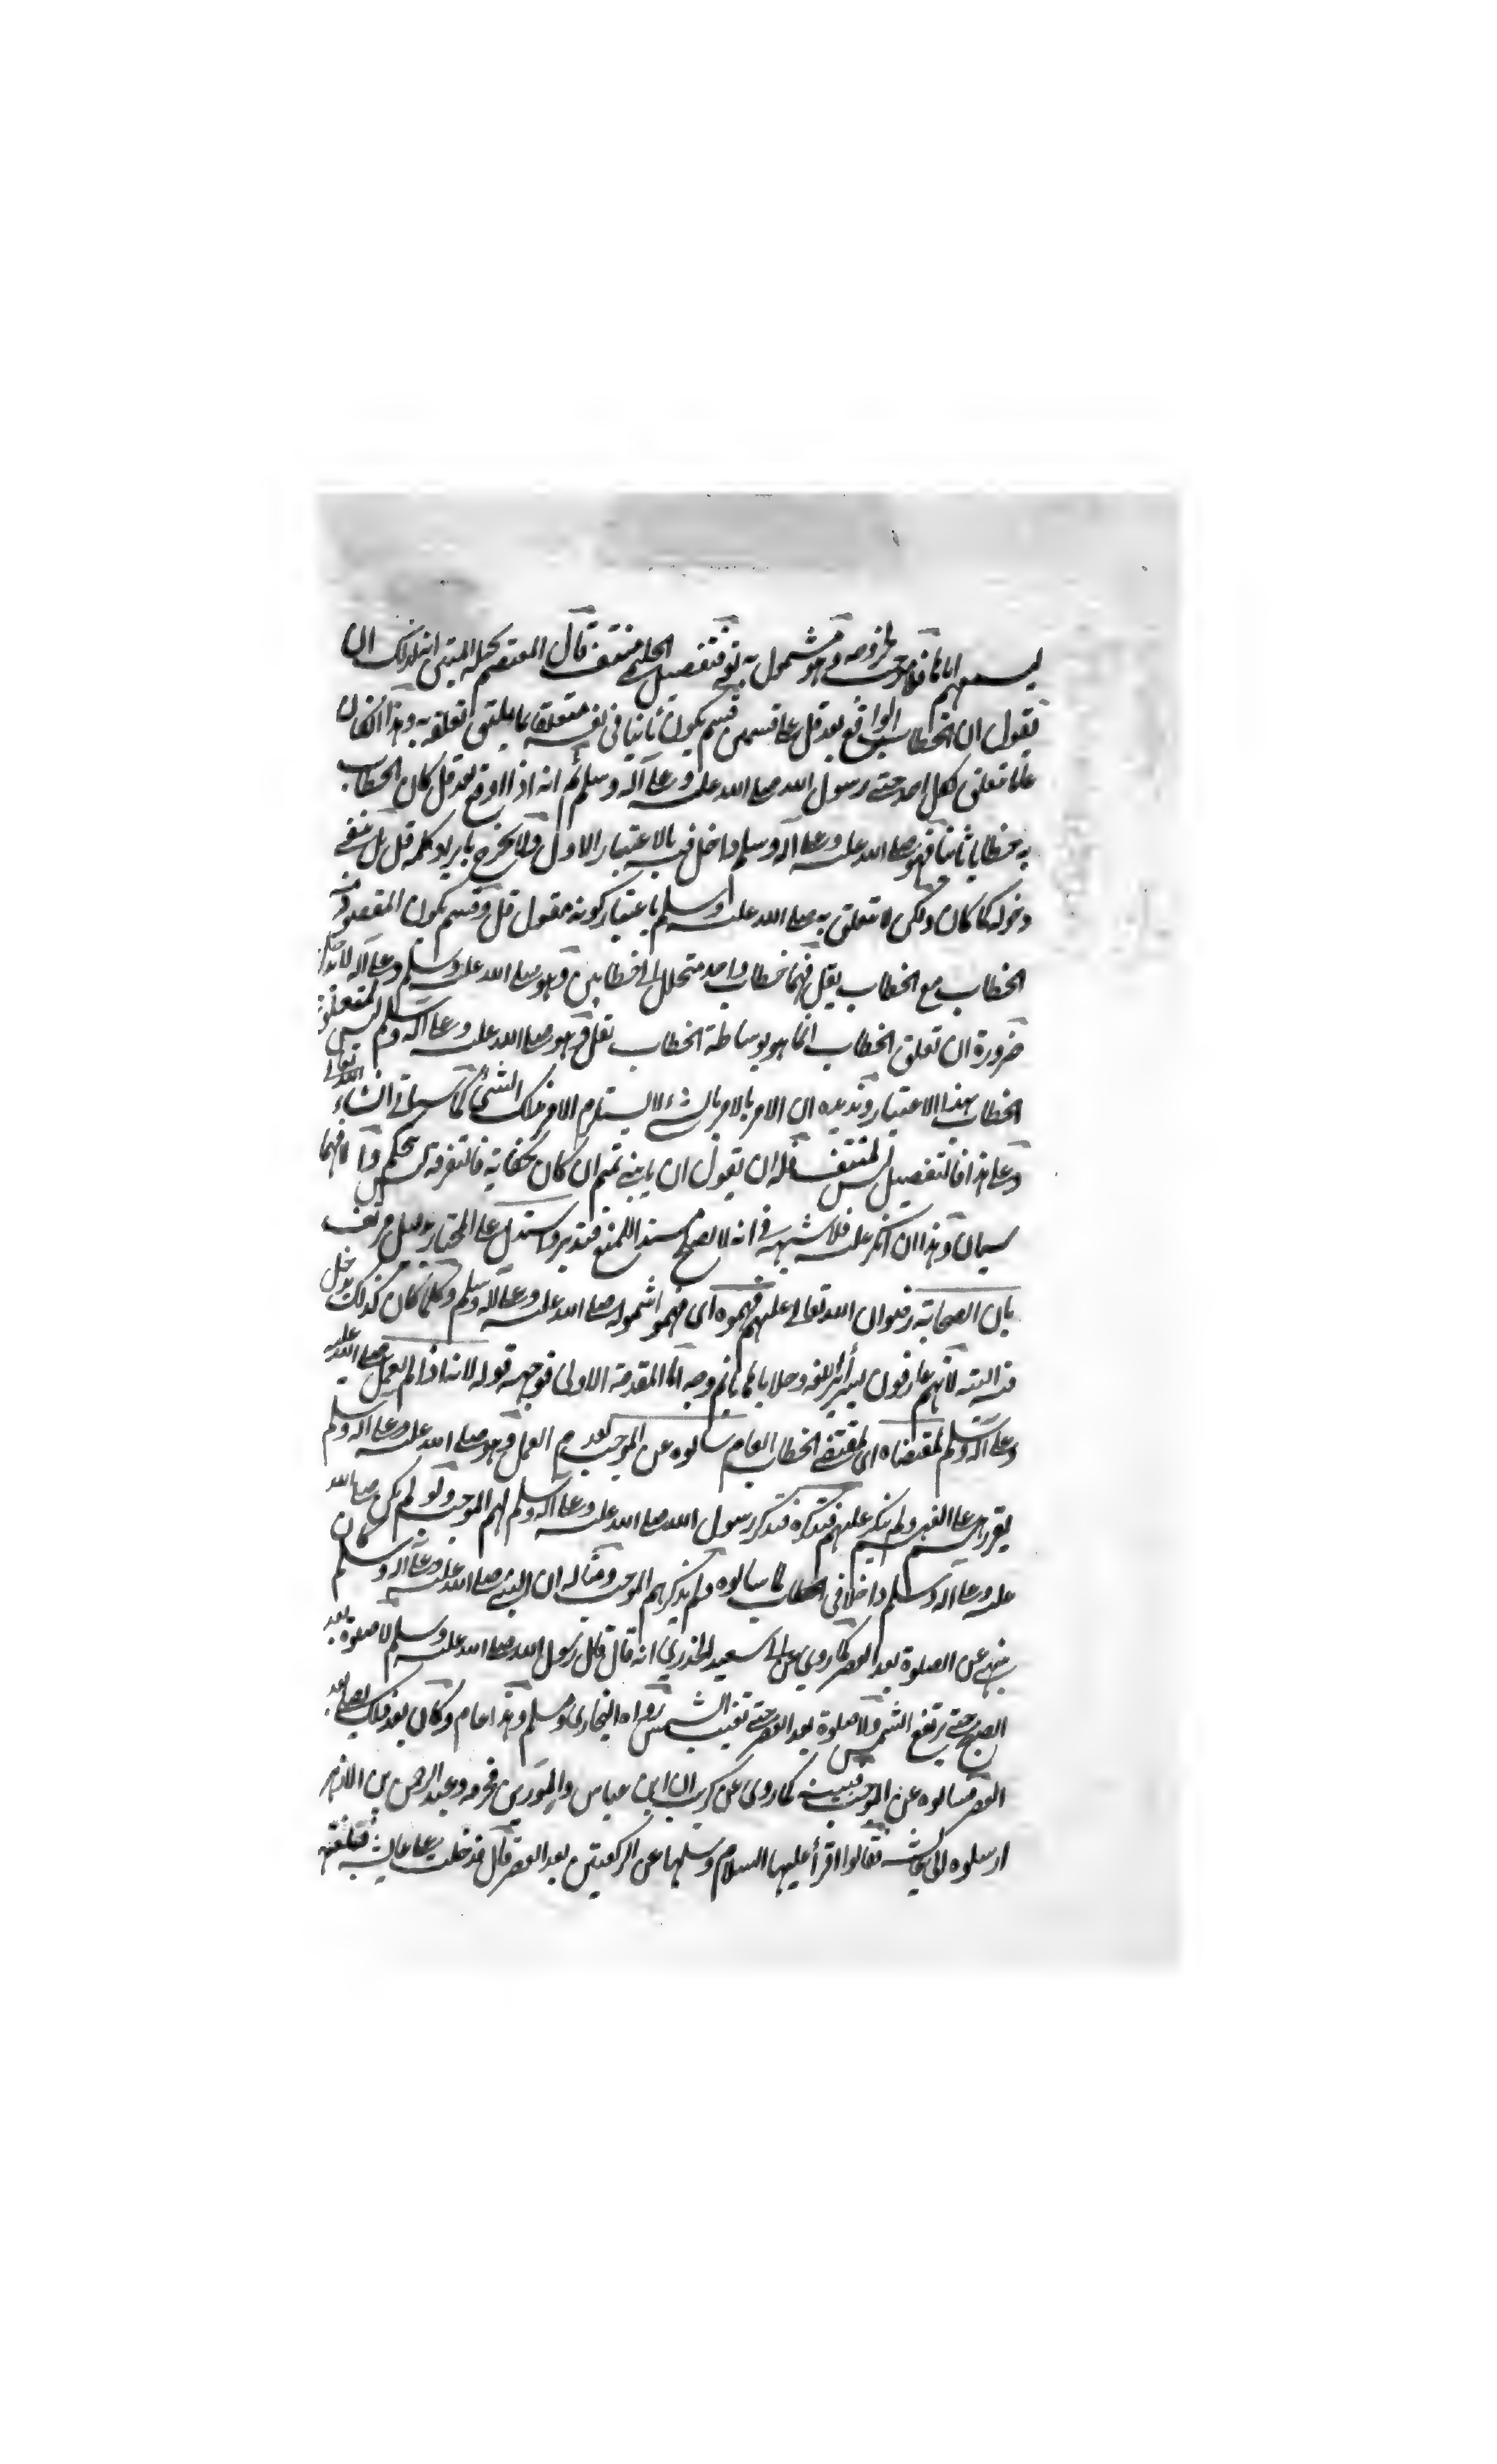 ليسمعهم اياها فلا موجب لخروجه وهو مشمول به لغة فتفصيل الحليمي منتف قال المعتصم بحبله المتين ان لذلك ان
يقول ان الخطاب الواقع بعد قل على قسمين قسم يكون ثابتا في نفسه متعلقا بما يليق تعلقه به وهذا الخطاب
عاما تعلق بكل احد حتى رسول الله صلى الله عليه وعلى آله وسلم ثم انه اذا اوقع بعد قل كان الخطاب
به خطابا ثانيا فهو صلى الله عليه وعلى آله وسلم داخل فيه بالاعتبار الاول ولا يخرج بايراد كلمة قل بل بقي
دخوله كما كان ولكن لا تعلق به صلى الله عليه وسلم باعتبار كونه مقول قل وقسم يكون المقصود من
الخطاب مع الخطاب بقل فهما خطاب واحد متحلل الى خطابين وهو صلى الله عليه وسلم وعلى آله لا يدخل
ضرورة ان تعلق الخطاب انما هو بوساطة الخطاب بقل وهو صلى الله عليه وعلى آله وسلم ليس لمتعلق
الخطاب بهذا الاعتبار ونديده ان الامر بالامر بالشيء لا يستلزم الامر بذلك الشيء كما سيأتي ان شاء الله تعالى
وعلى هذا فالتفصيل ليس بمنتف فله ان يقول ان ما بينه تم ان كان بحقايته فالتفرقة تحكم والا فهما
سيان وهذا ان انكر عليه فلا شبهة في انه لا يصح مستند المنع فتدبر واستدل على المختار بدليل مزيف
بان الصحابة رضوان الله تعالى عليهم فهموه اي فهموا شموله صلى الله عليه وعلى آله وسلم وكلما كان كذلك يدخل
فيه البتة لانهم عارفون بسرائر اللغة وجلاياها ما بانهم وجه اما المقدمة الاولى فوجهه قوله لانه اذا لم يعمل صلى الله عليه
وعلى آله وسلم لمقتضاه اي لمقتضى الخطاب العام سألوه عن الموجب لعدم العمل وهو صلى الله عليه وعلى آله وسلم
يقررهم على الفهم ولم ينكر عليهم فتذكره فتذكر رسول الله صلى الله عليه وعلى آله وسلم لهم الموجب ولو لم يكن صلى الله
عليه وعلى آله وسلم داخلا في الخطاب لما سألوه ولم يذكر لهم الموجب ومثاله ان النبي صلى الله عليه وعلى آله وسلم كان
ينهى عن الصلوة بعد العصر كما روي عن ابي سعيد الخدري انه قال قال رسول الله صلى الله عليه وسلم لا صلوة بعد
الصبح حتى ترتفع الشمس ولا صلوة بعد العصر حتى تغيب الشمس رواه البخاري ومسلم وهذا عام وكان بعد ذلك يصلي بعد
العصر فسألوه عن الموجب فبينه كما روى عن كريب ان ابن عباس والمسور بن مخرمة وعبد الرحمن بن الازهر
ارسلوه الى عائشة فقالوا اقرأ عليها السلام وسلها عن الركعتين بعد العصر قال فدخلت على عائشة فبلغتها